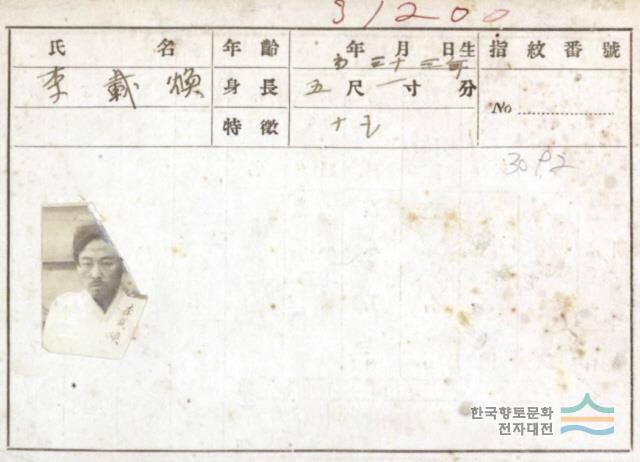 31200
氏 名 年 齡 年 月 日生 指紋番號
李載煥 身 長 五尺一寸 分
No
特徵 ナシ
30P2
한국향토문화
전자대전